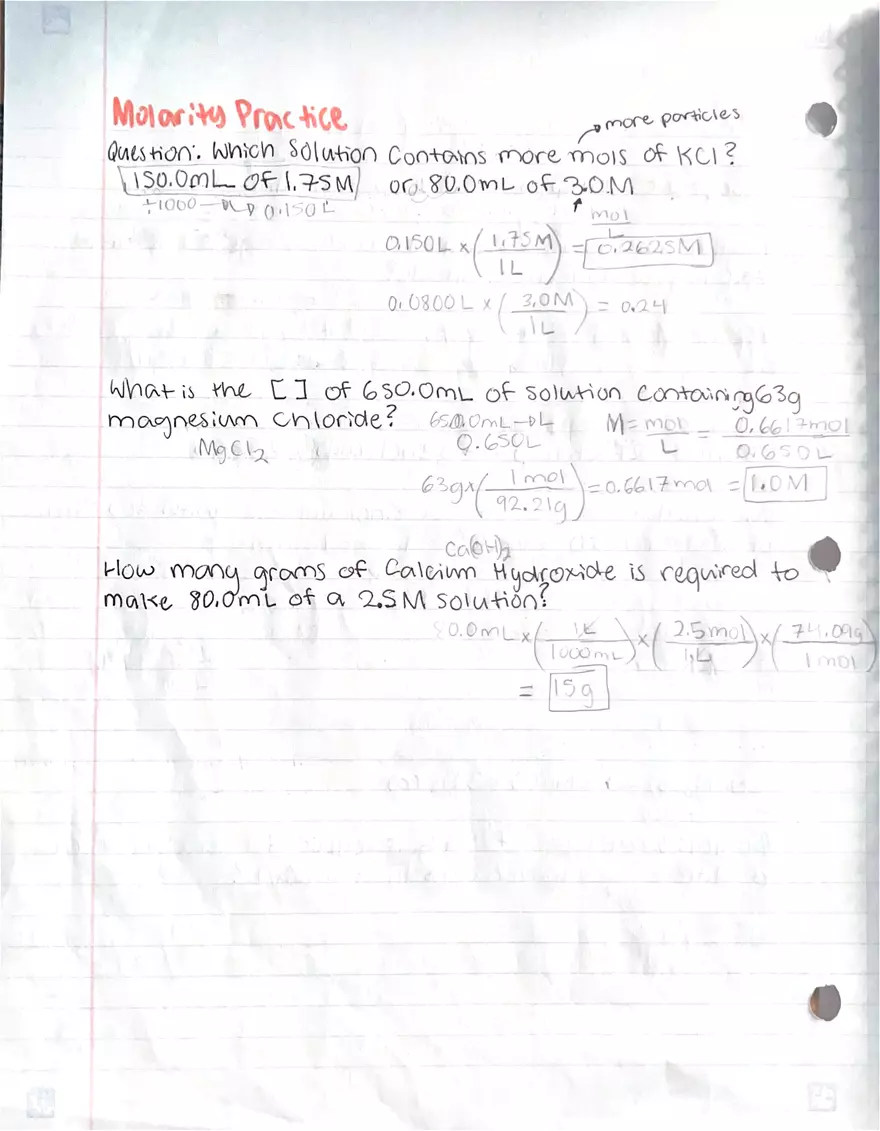 Molarity Practice
more particles
Question: Which Solution Contains more mols of KCl?
150.0mL OF 1.75M or 80.0mL of 3.0M
÷1000 → 0.150L
mol
L
0.150L x (1.75M / 1L) = 0.2625M
0.0800L x (3.0M / 1L) = 0.24
What is the [ ] of 650.0mL of solution containing 63g
magnesium chloride? 650.0mL→L M = mol / L = 0.6617mol / 0.650L
MgCl2 0.650L
63g x (1 mol / 92.21g) = 0.6617mol = 1.0M
Ca(OH)2
How many grams of Calcium Hydroxide is required to
make 80.0mL of a 2.5M solution?
80.0mL x (1L / 1000mL) x (2.5mol / 1L) x (74.09g / 1mol)
= 15g